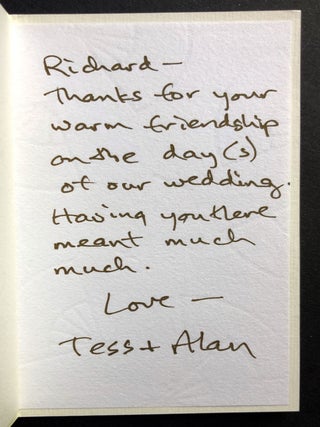 Richard —
Thanks for your
warm friendship
on the day(s)
of our wedding.
Having you there
meant much
much.
Love —
Tess + Alan